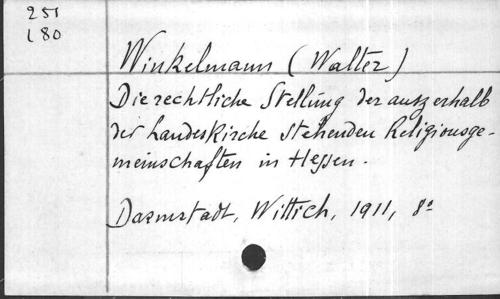 251
L80
Winkelmann (Walter)
Die rechtliche Stellung der auszerhalb
der Landeskirche stehenden Religionsge-
meinschaften in Hessen.
Darmstadt, Wittich, 1911, 8°